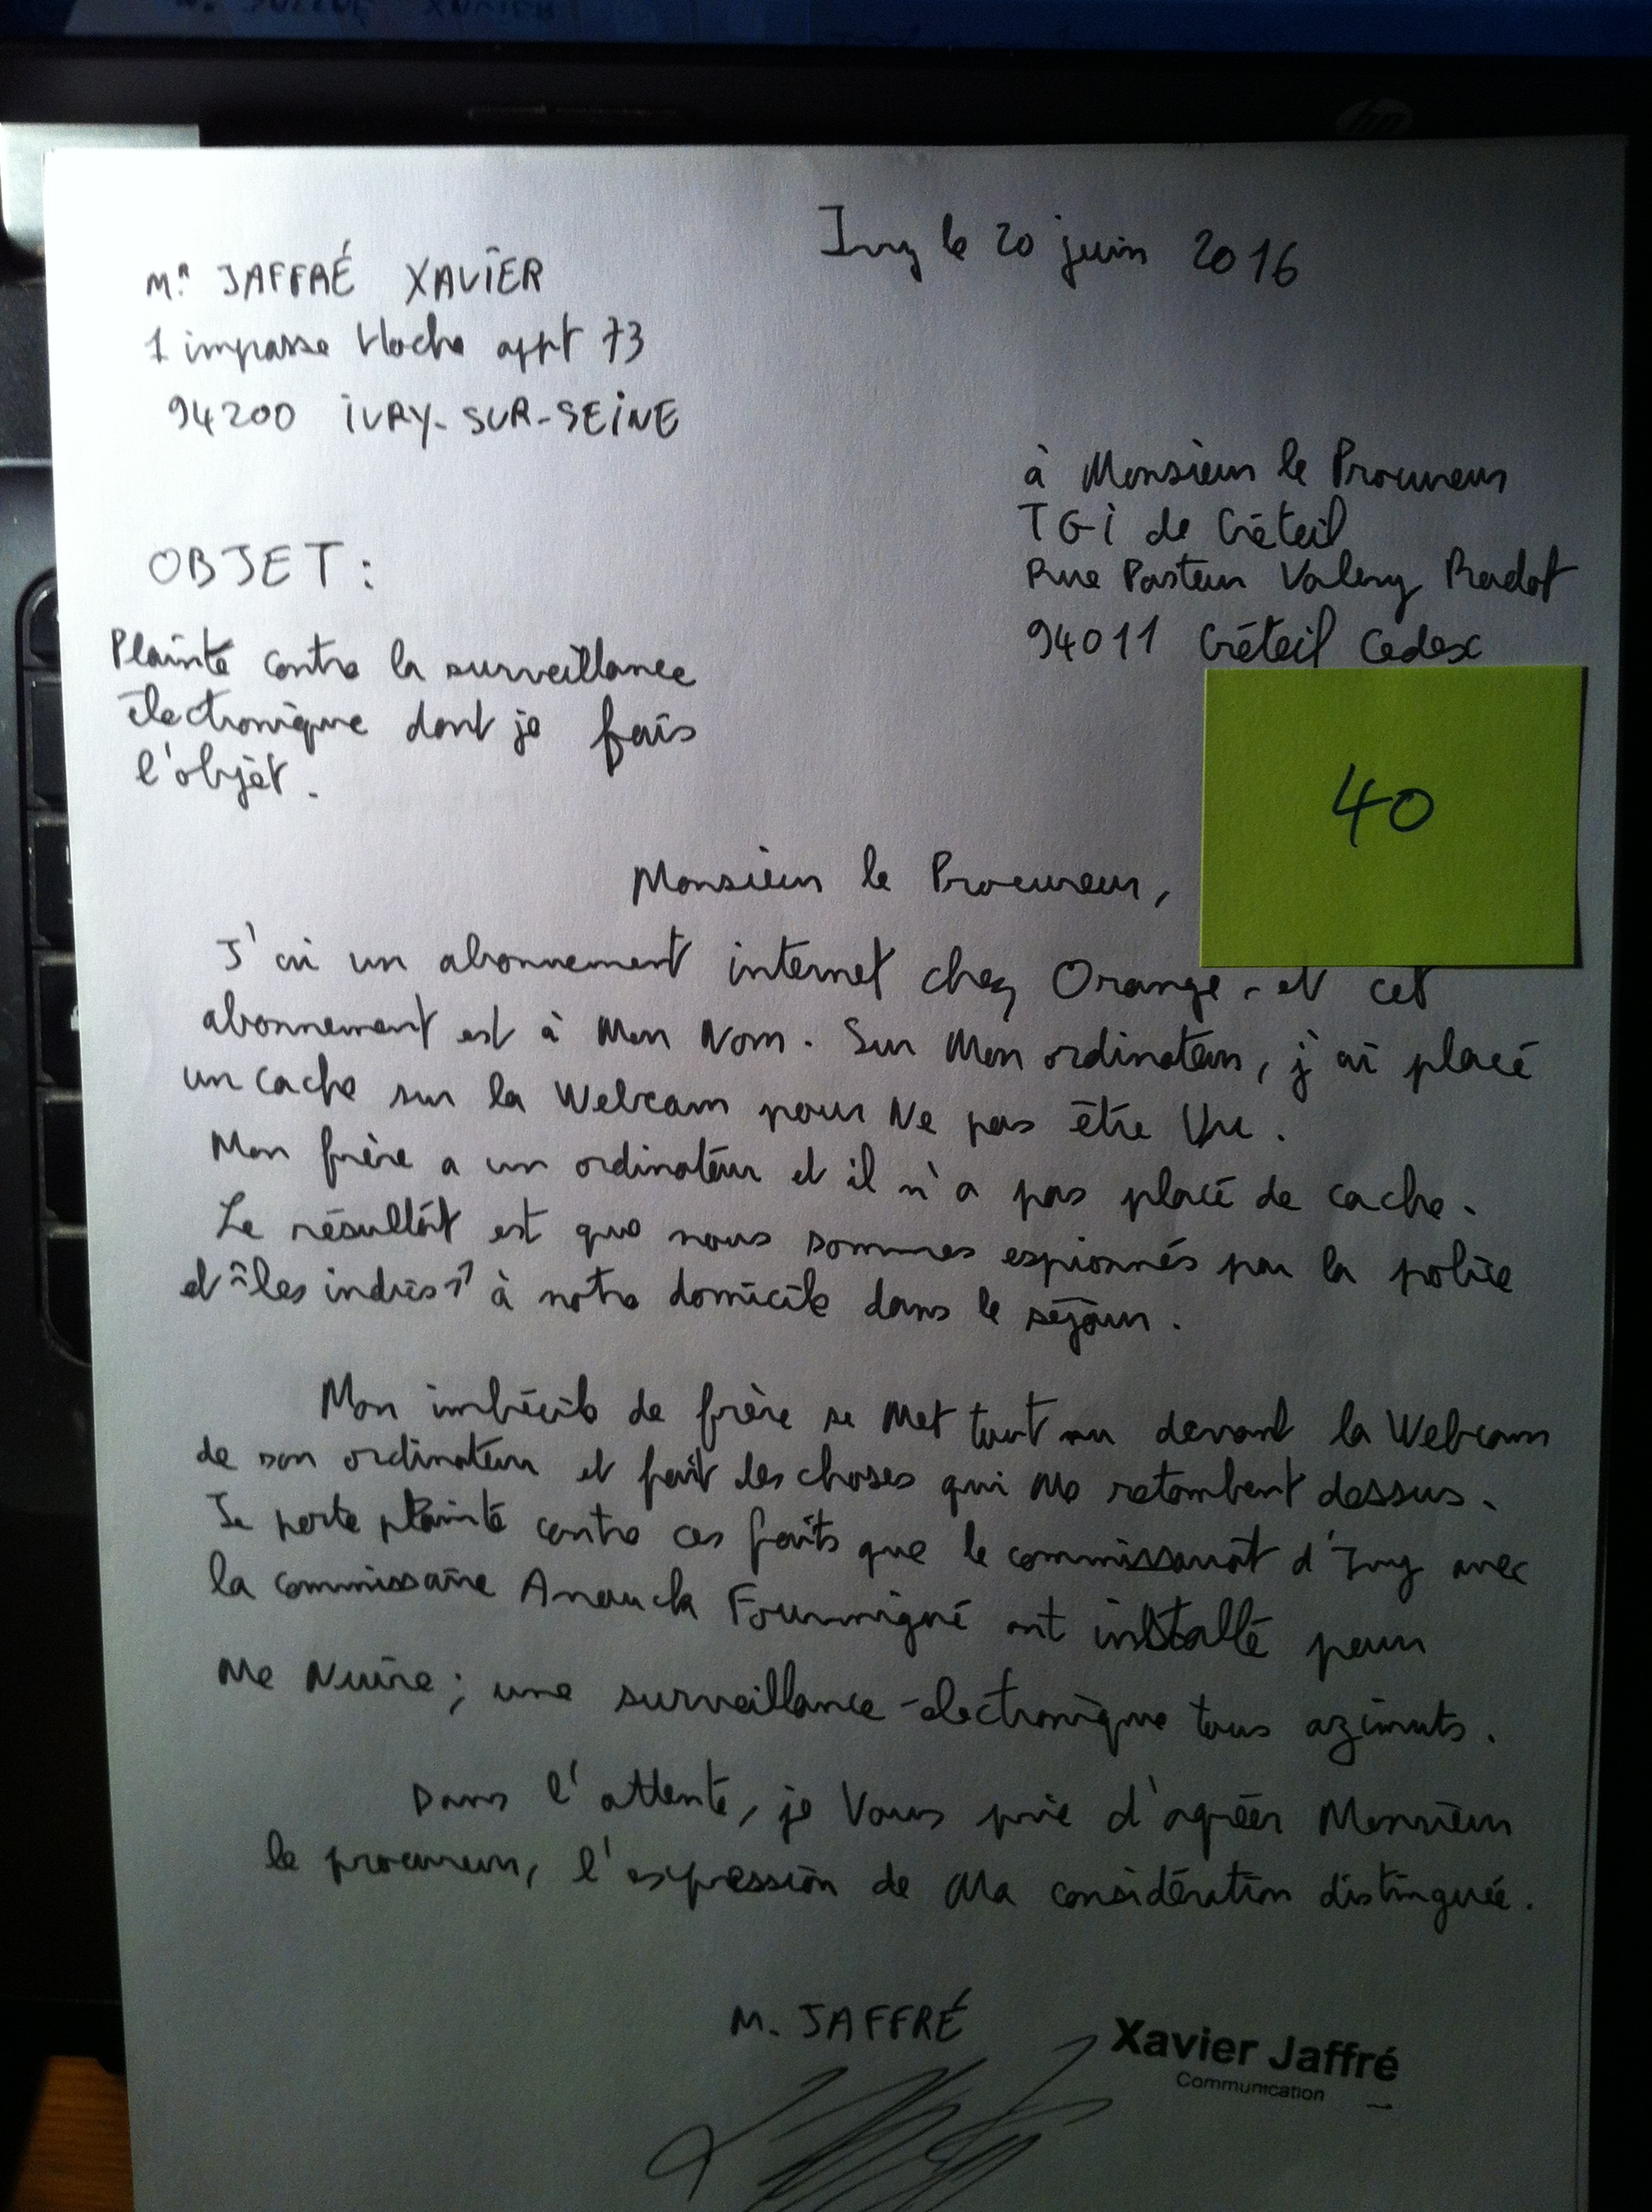 Ivry le 20 juin 2016
Mr JAFFRÉ XAVIER
1 impasse Hoche appt 73
94200 IVRY-SUR-SEINE
à Monsieur le Procureur
TGI de Créteil
Rue Pasteur Valery Radot
94011 Créteil Cedex
OBJET :
Plainte contre la surveillance
électronique dont je fais
l'objet.
40
Monsieur le Procureur,
J'ai un abonnement internet chez Orange, et cet
abonnement est à Mon Nom. Sur Mon ordinateur, j'ai placé
un cache sur la Webcam pour Ne pas être Vu.
Mon frère a un ordinateur et il n'a pas placé de cache.
Le résultat est que nous sommes espionnés par la police
et "les indics" à notre domicile dans le séjour.
Mon imbécile de frère se Met tout nu devant la Webcam
de son ordinateur et fait des choses qui Me retombent dessus.
Je porte plainte contre ces faits que le commissariat d'Ivry avec
la commissaire Anouck Fourmigué ont installé pour
Me Nuire ; une surveillance électronique tous azimuts.
Dans l'attente, je Vous prie d'agréer Monsieur
le procureur, l'expression de Ma considération distinguée.
M. JAFFRÉ
Xavier Jaffré
Communication